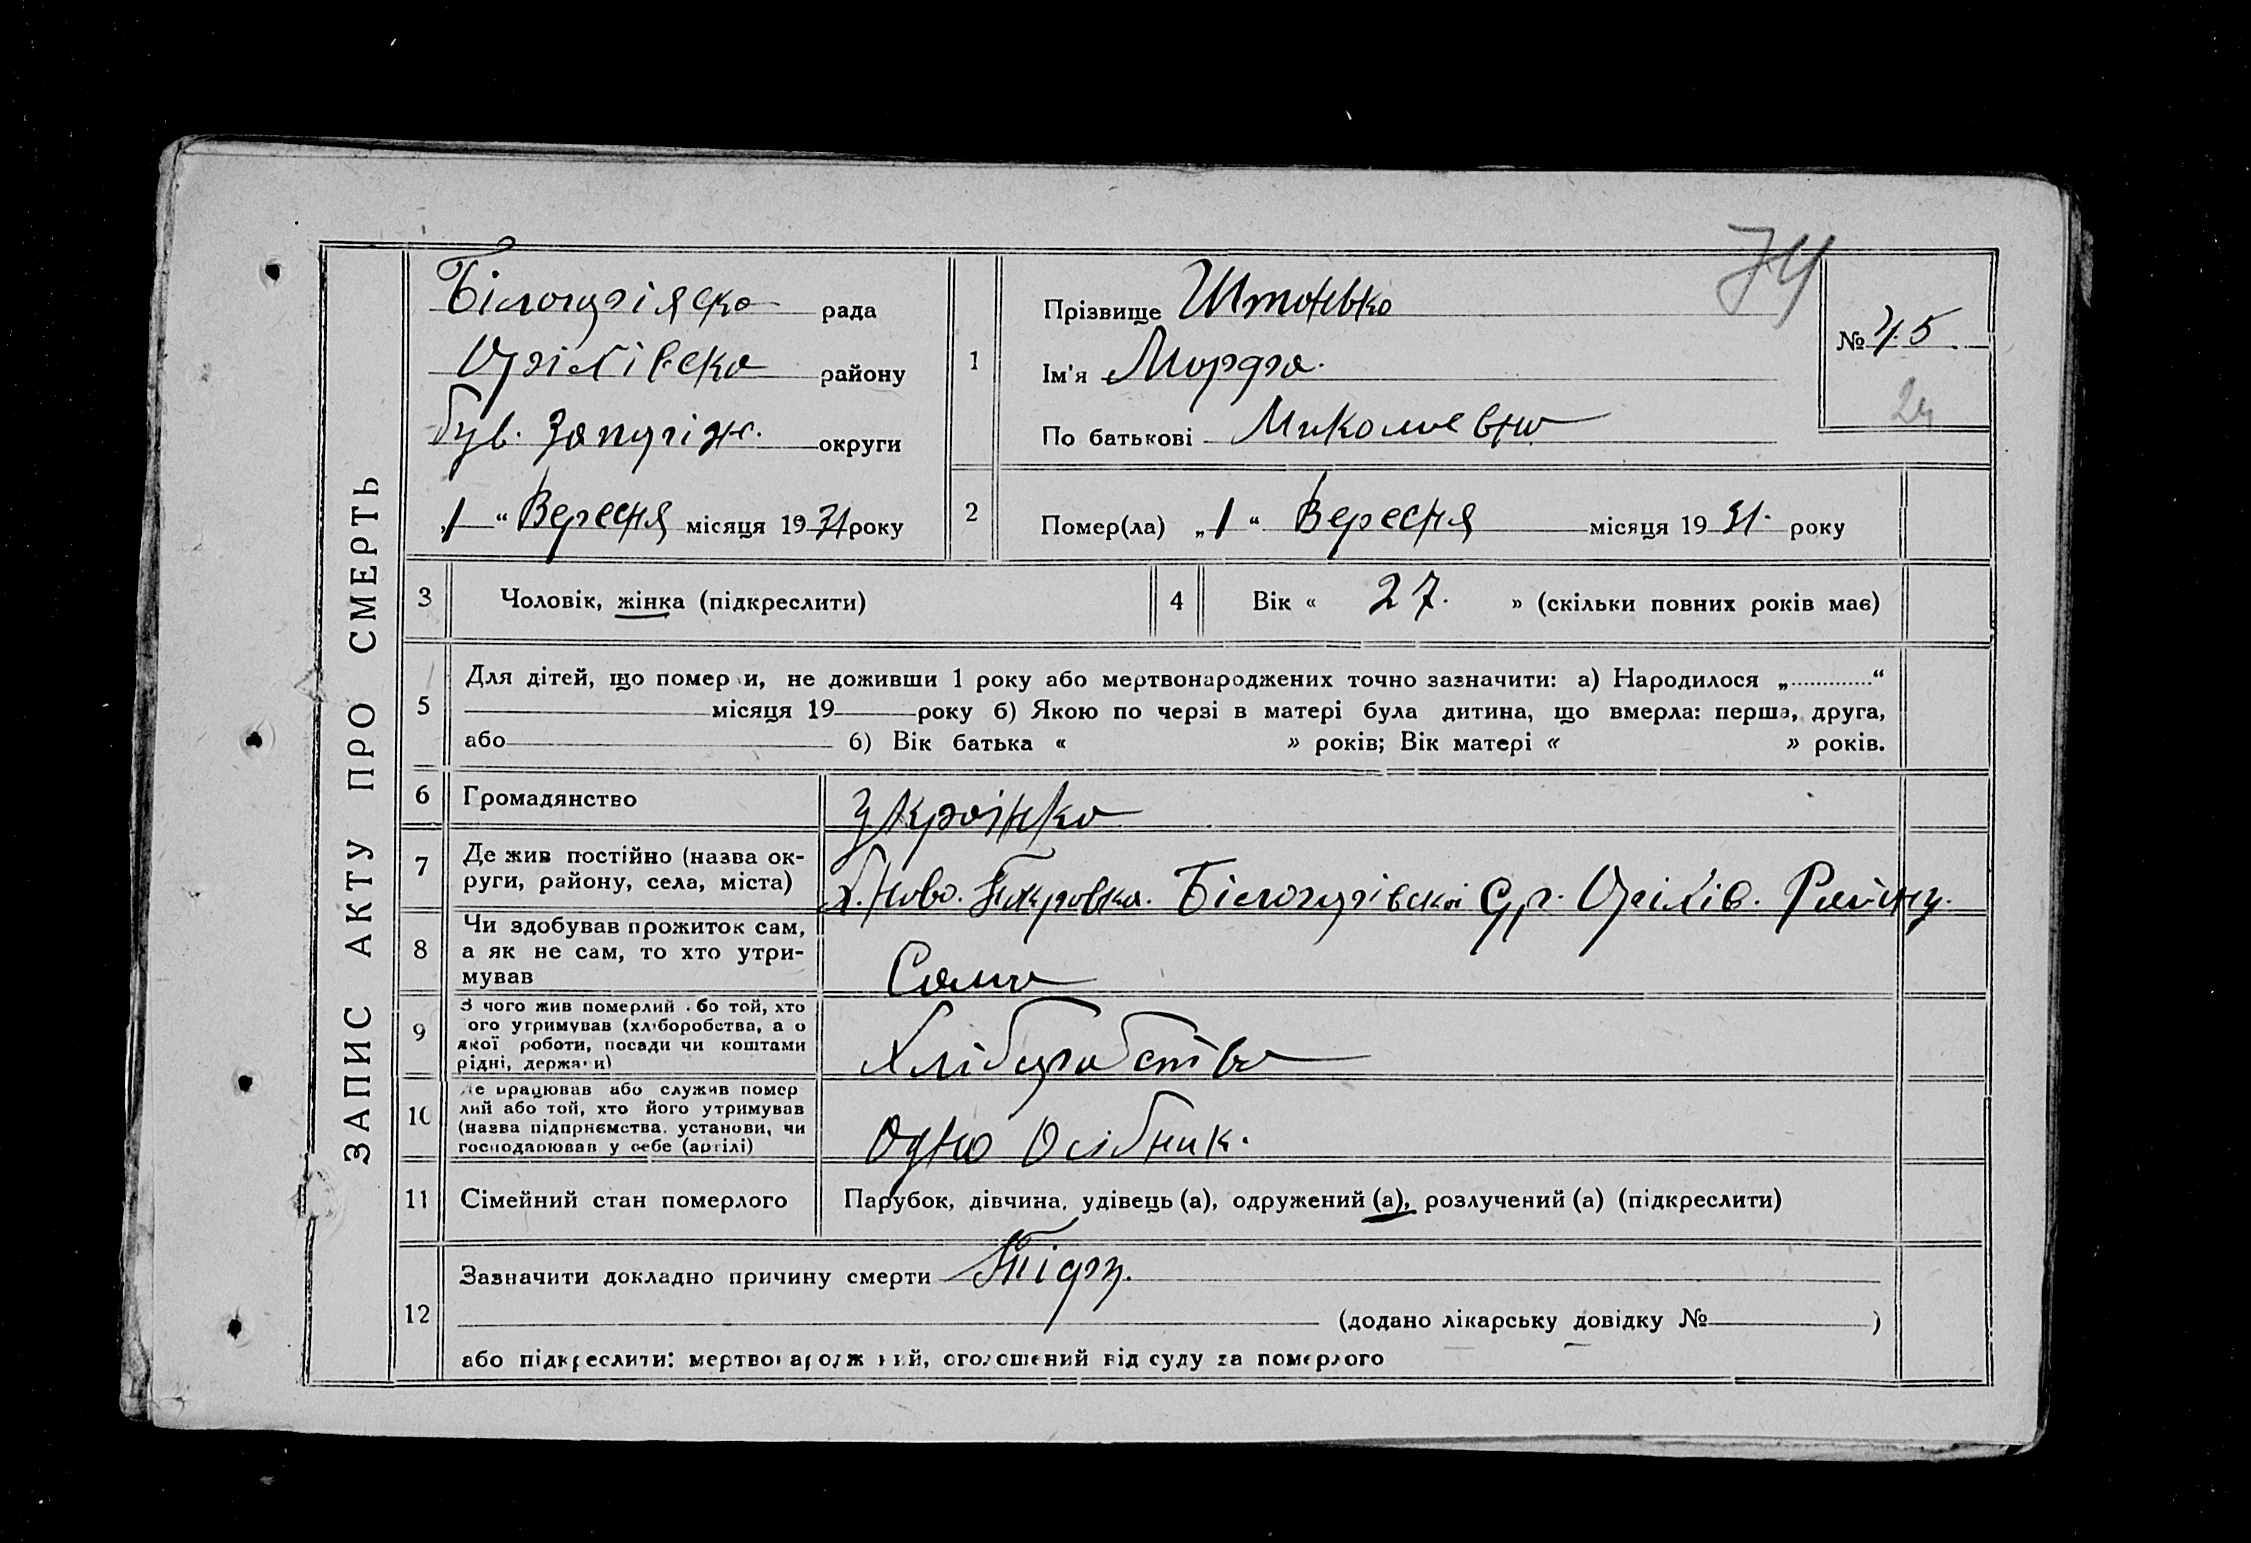 ЗАПИС АКТУ ПРО СМЕРТЬ
74
Білогірська рада
Оріхівска району
був. Запоріж. округи
„1“ Вересня місяця 1931 року
1
Прізвище
Ім'я
По батькові Миколаевна
№ 45
24
2
Помер(ла) „1“ Вересня місяця 1931. року
3 Чоловік, жінка (підкреслити)
4 Вік « 27. » (скільки повних років має)
5 Для дітей, що померли, не доживши 1 року або мертвонароджених точно зазначити: а) Народилося „.............“
місяця 19 року б) Якою по черзі в матері була дитина, що вмерла: перша, друга,
або б) Вік батька « » років; Вік матері « » років.
6 Громадянство Украінка
7 Де жив постійно (назва ок-
руги, району, села, міста)
х. Ново. Білогирівскоі С/р. Оріхів. Району.
8 Чи здобував прожиток сам,
а як не сам, то хто утри-
мував
Сама
9 З чого жив померлий або той, хто
ого утримував (хліборобства, а о
якої роботи, посади чи коштами
рідні, держави)
Хліборобство
10 Де працював або служив помер
лий або той, хто його утримував
(назва підприємства, установи, чи
господарював у себе (артілі)
Одно Осібник.
11 Сімейний стан померлого Парубок, дівчина, удівець (а), одружений (а), розлучений (а) (підкреслити)
12 Зазначити докладно причину смерти
(додано лікарську довідку № )
або підкреслити: мертвонароджений, оголошений від суду за померлого